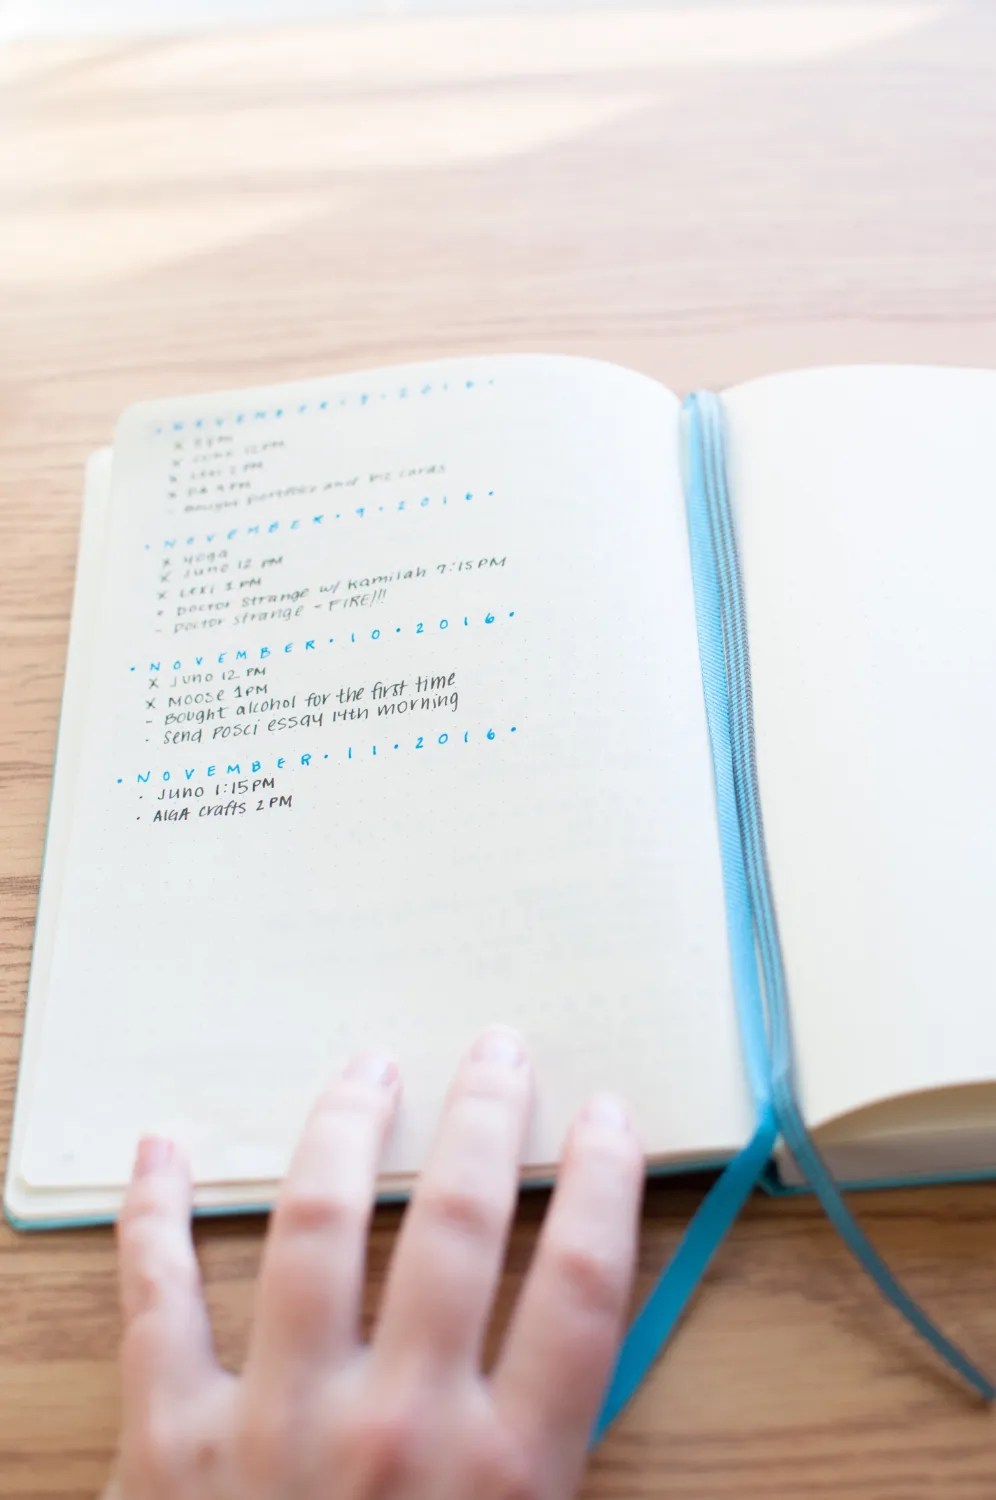 • NOVEMBER • 8 • 2016 •
x Gym
x Juno 12PM
x Lexi 2 PM
x PM
- Bought portfolio and biz cards
• NOVEMBER • 9 • 2016 •
x Yoga
x Juno 12 PM
x Lexi 1 PM
• Doctor Strange w/ Kamilah 7:15PM
- Doctor Strange - FIRE!!!
• NOVEMBER • 10 • 2016 •
x Juno 12 PM
x Moose 1PM
- Bought alcohol for the first time
· Send PoSci essay 14th morning
• NOVEMBER • 11 • 2016 •
· Juno 1:15PM
· AIGA crafts 2PM